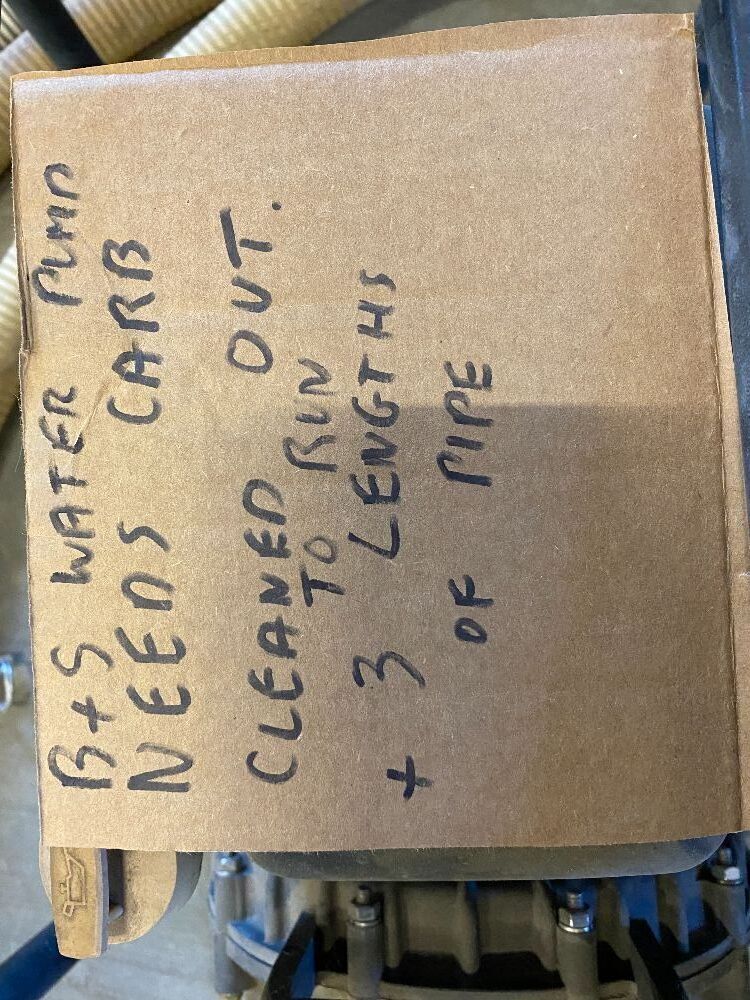 B+S WATER PUMP
NEEDS CARB
CLEANED OUT.
TO RUN
+ 3 LENGTHS
OF PIPE